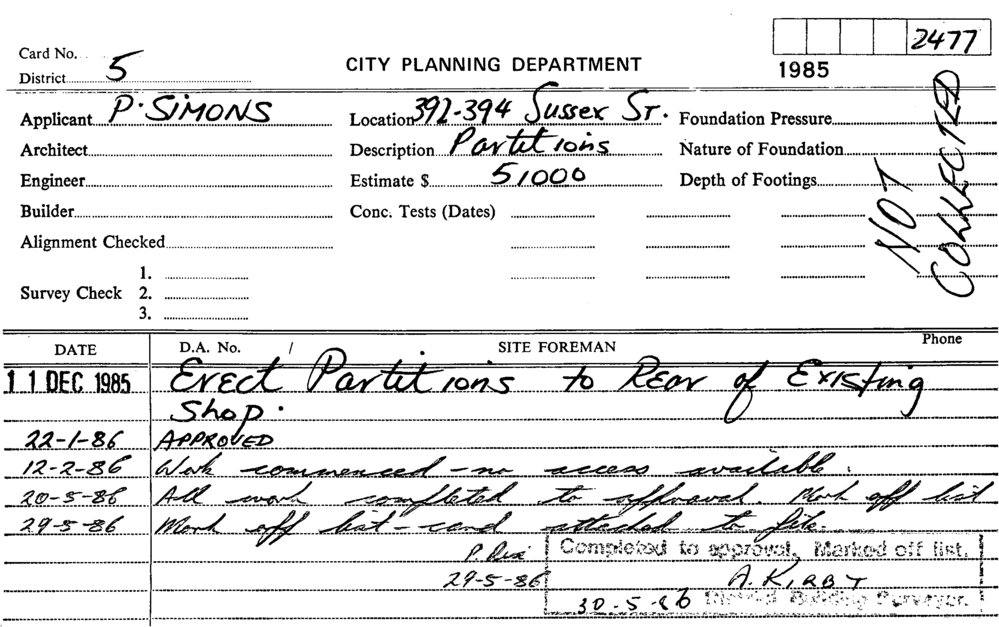 Card No.
District 5
CITY PLANNING DEPARTMENT
2477
1985
Applicant P. SIMONS
Location 392-394 Sussex ST.
Foundation Pressure
Architect
Description Partitions
Nature of Foundation
Engineer
Estimate $ 51000
Depth of Footings
Builder
Conc. Tests (Dates)
Alignment Checked
Survey Check 1.
2.
3.
NOT
COLLECTED
DATE D.A. No. / SITE FOREMAN Phone
11 DEC 1985 Erect Partitions to Rear of Existing
Shop.
22-1-86 APPROVED
12-2-86 Work commenced - no access available.
20-5-86 All work completed to approval. Mark off list
29-5-86 Mark off list - card attached to file.
P.
29-5-86
Completed to approval, Marked off list.
A. KIRBY
30-5-86 District Building Surveyor.